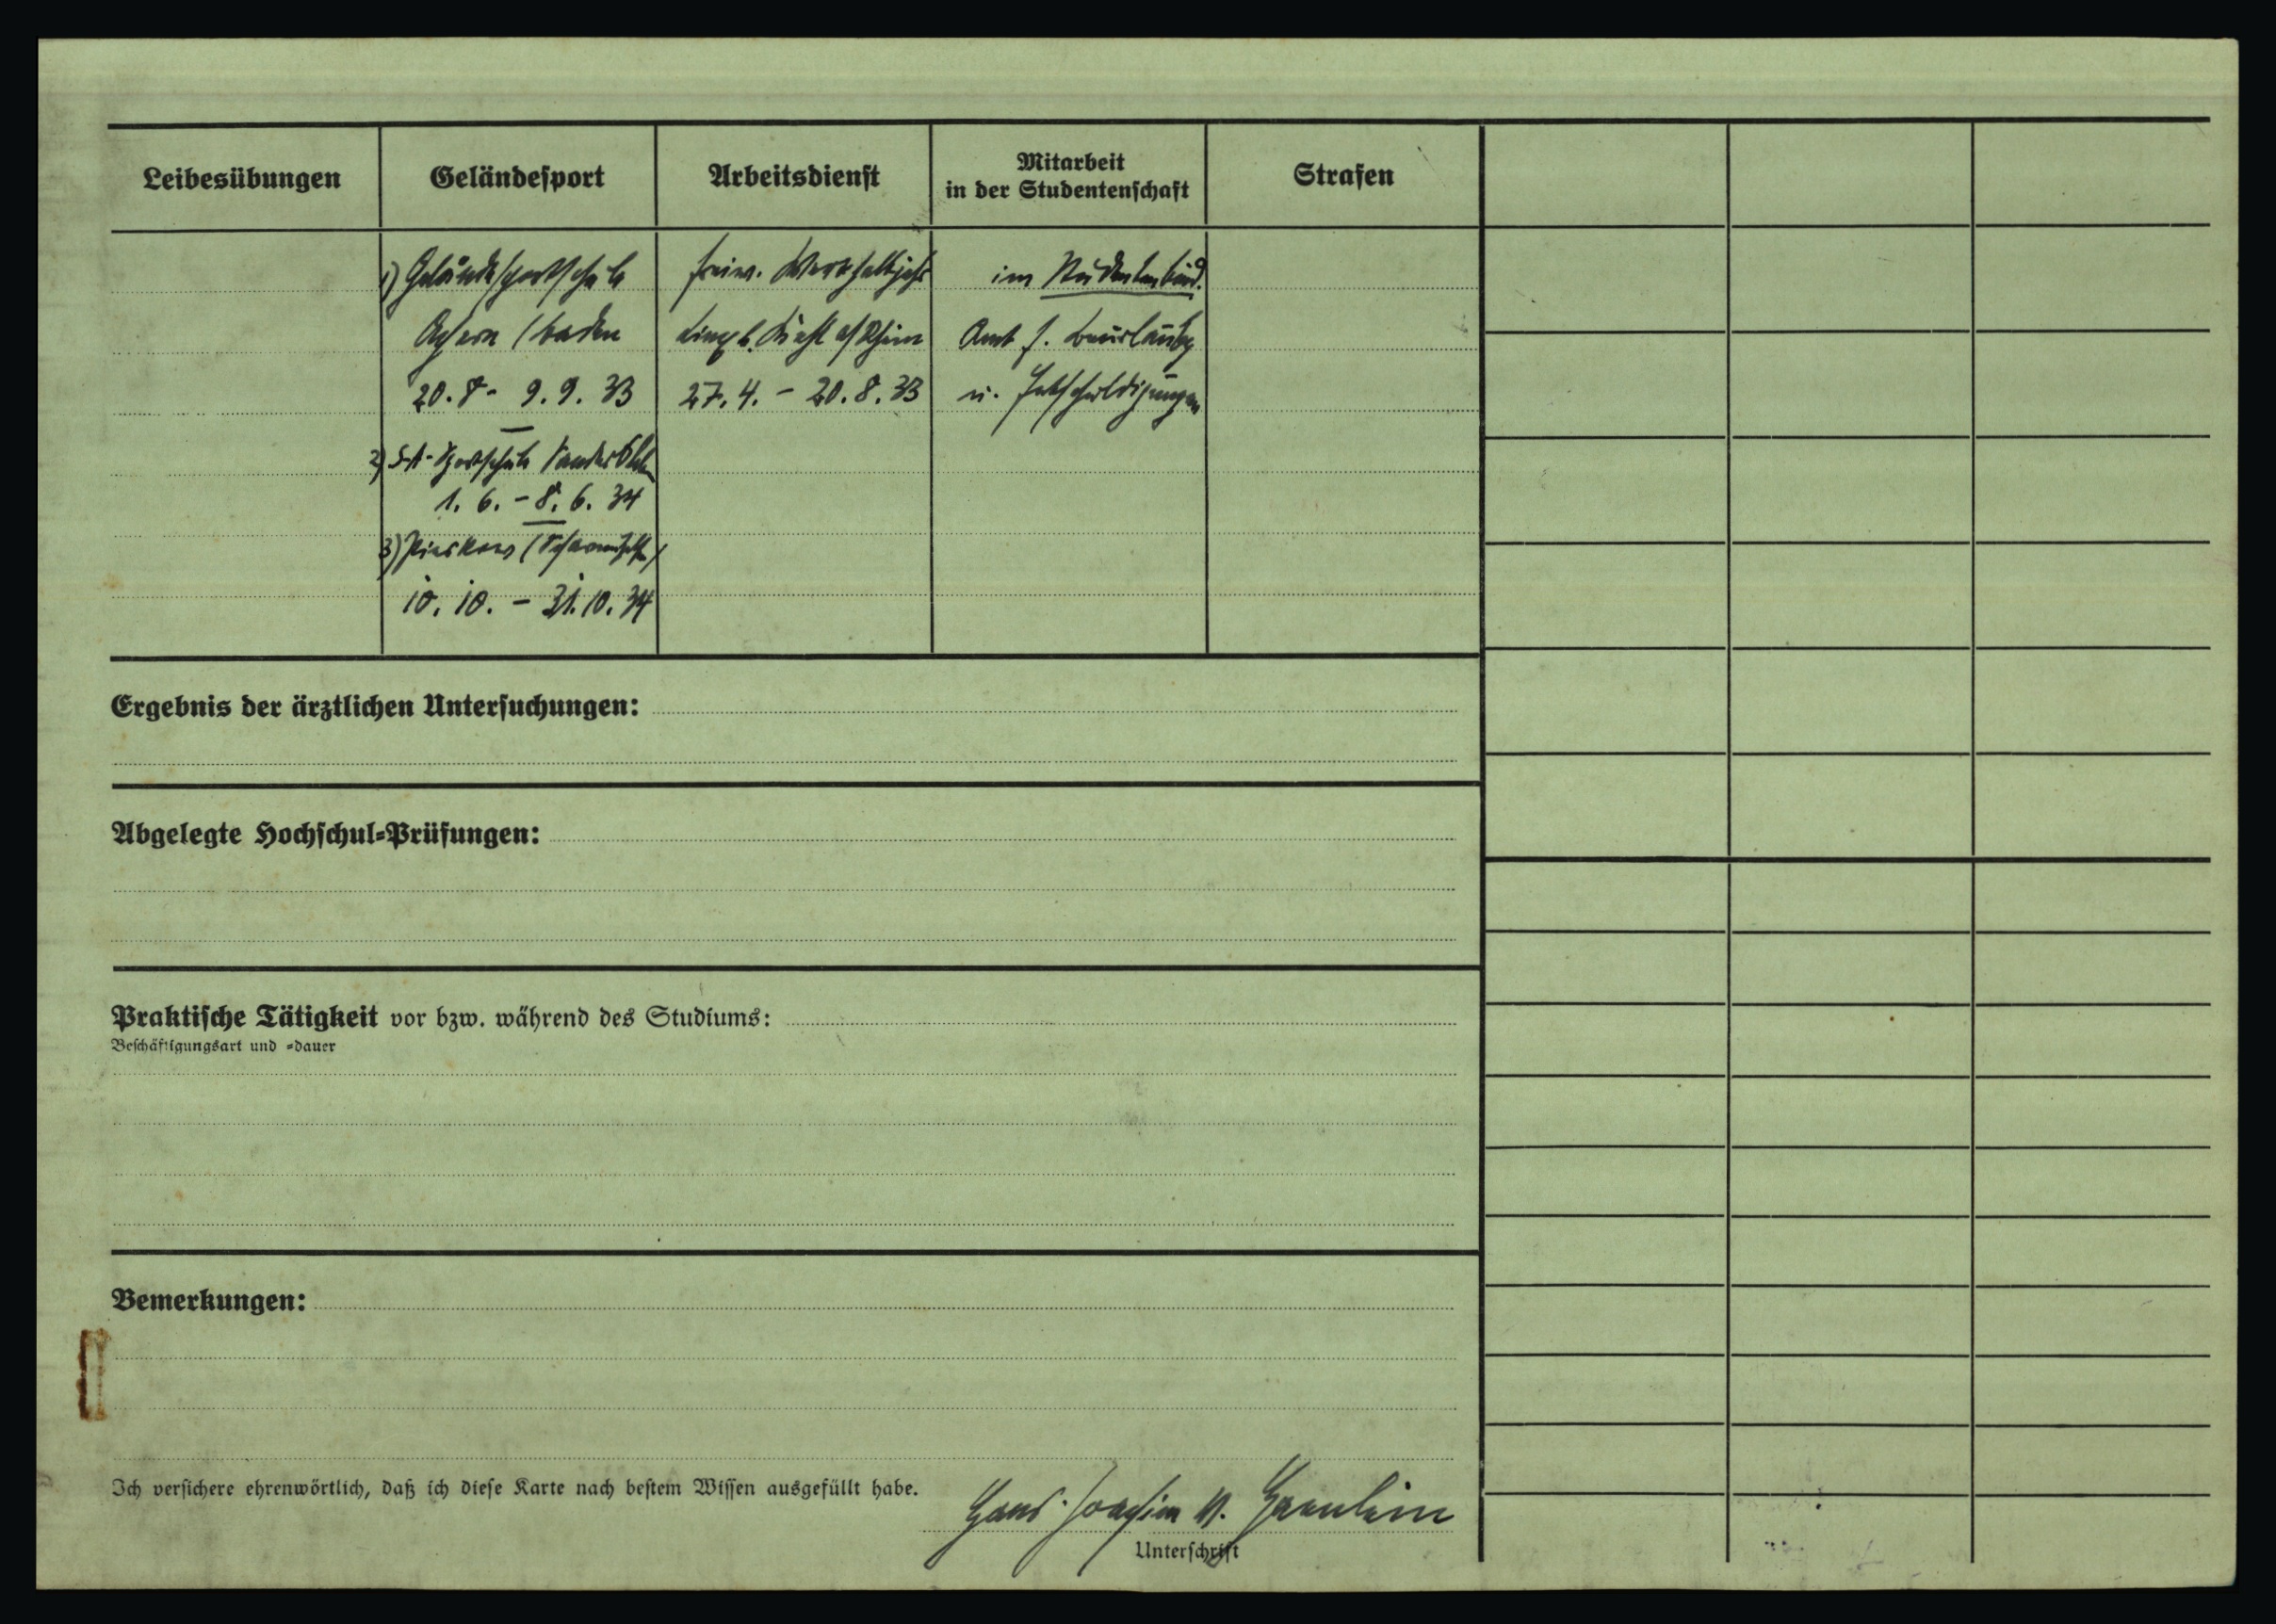 Leibesübungen
Geländesport
Arbeitsdienst
Mitarbeit
in der Studentenschaft
Strafen
1) Geländesportschule
Achern / Baden
20. 8 - 9. 9. 33
2) SA-Sportschule
1. 6. - 8. 6. 34
3)
10. 10. - 31. 10. 34
freiw. Werkhalbjahr
a/Rhein
27. 4. - 20. 8. 33
im Studentenbund.
Amt f. Beurlaubg
u. Entschuldigungen
Ergebnis der ärztlichen Untersuchungen:
Abgelegte Hochschul-Prüfungen:
Praktische Tätigkeit vor bzw. während des Studiums:
Beschäftigungsart und -dauer
Bemerkungen:
Ich versichere ehrenwörtlich, daß ich diese Karte nach bestem Wissen ausgefüllt habe.
Hans-Joachim v.
Unterschrift